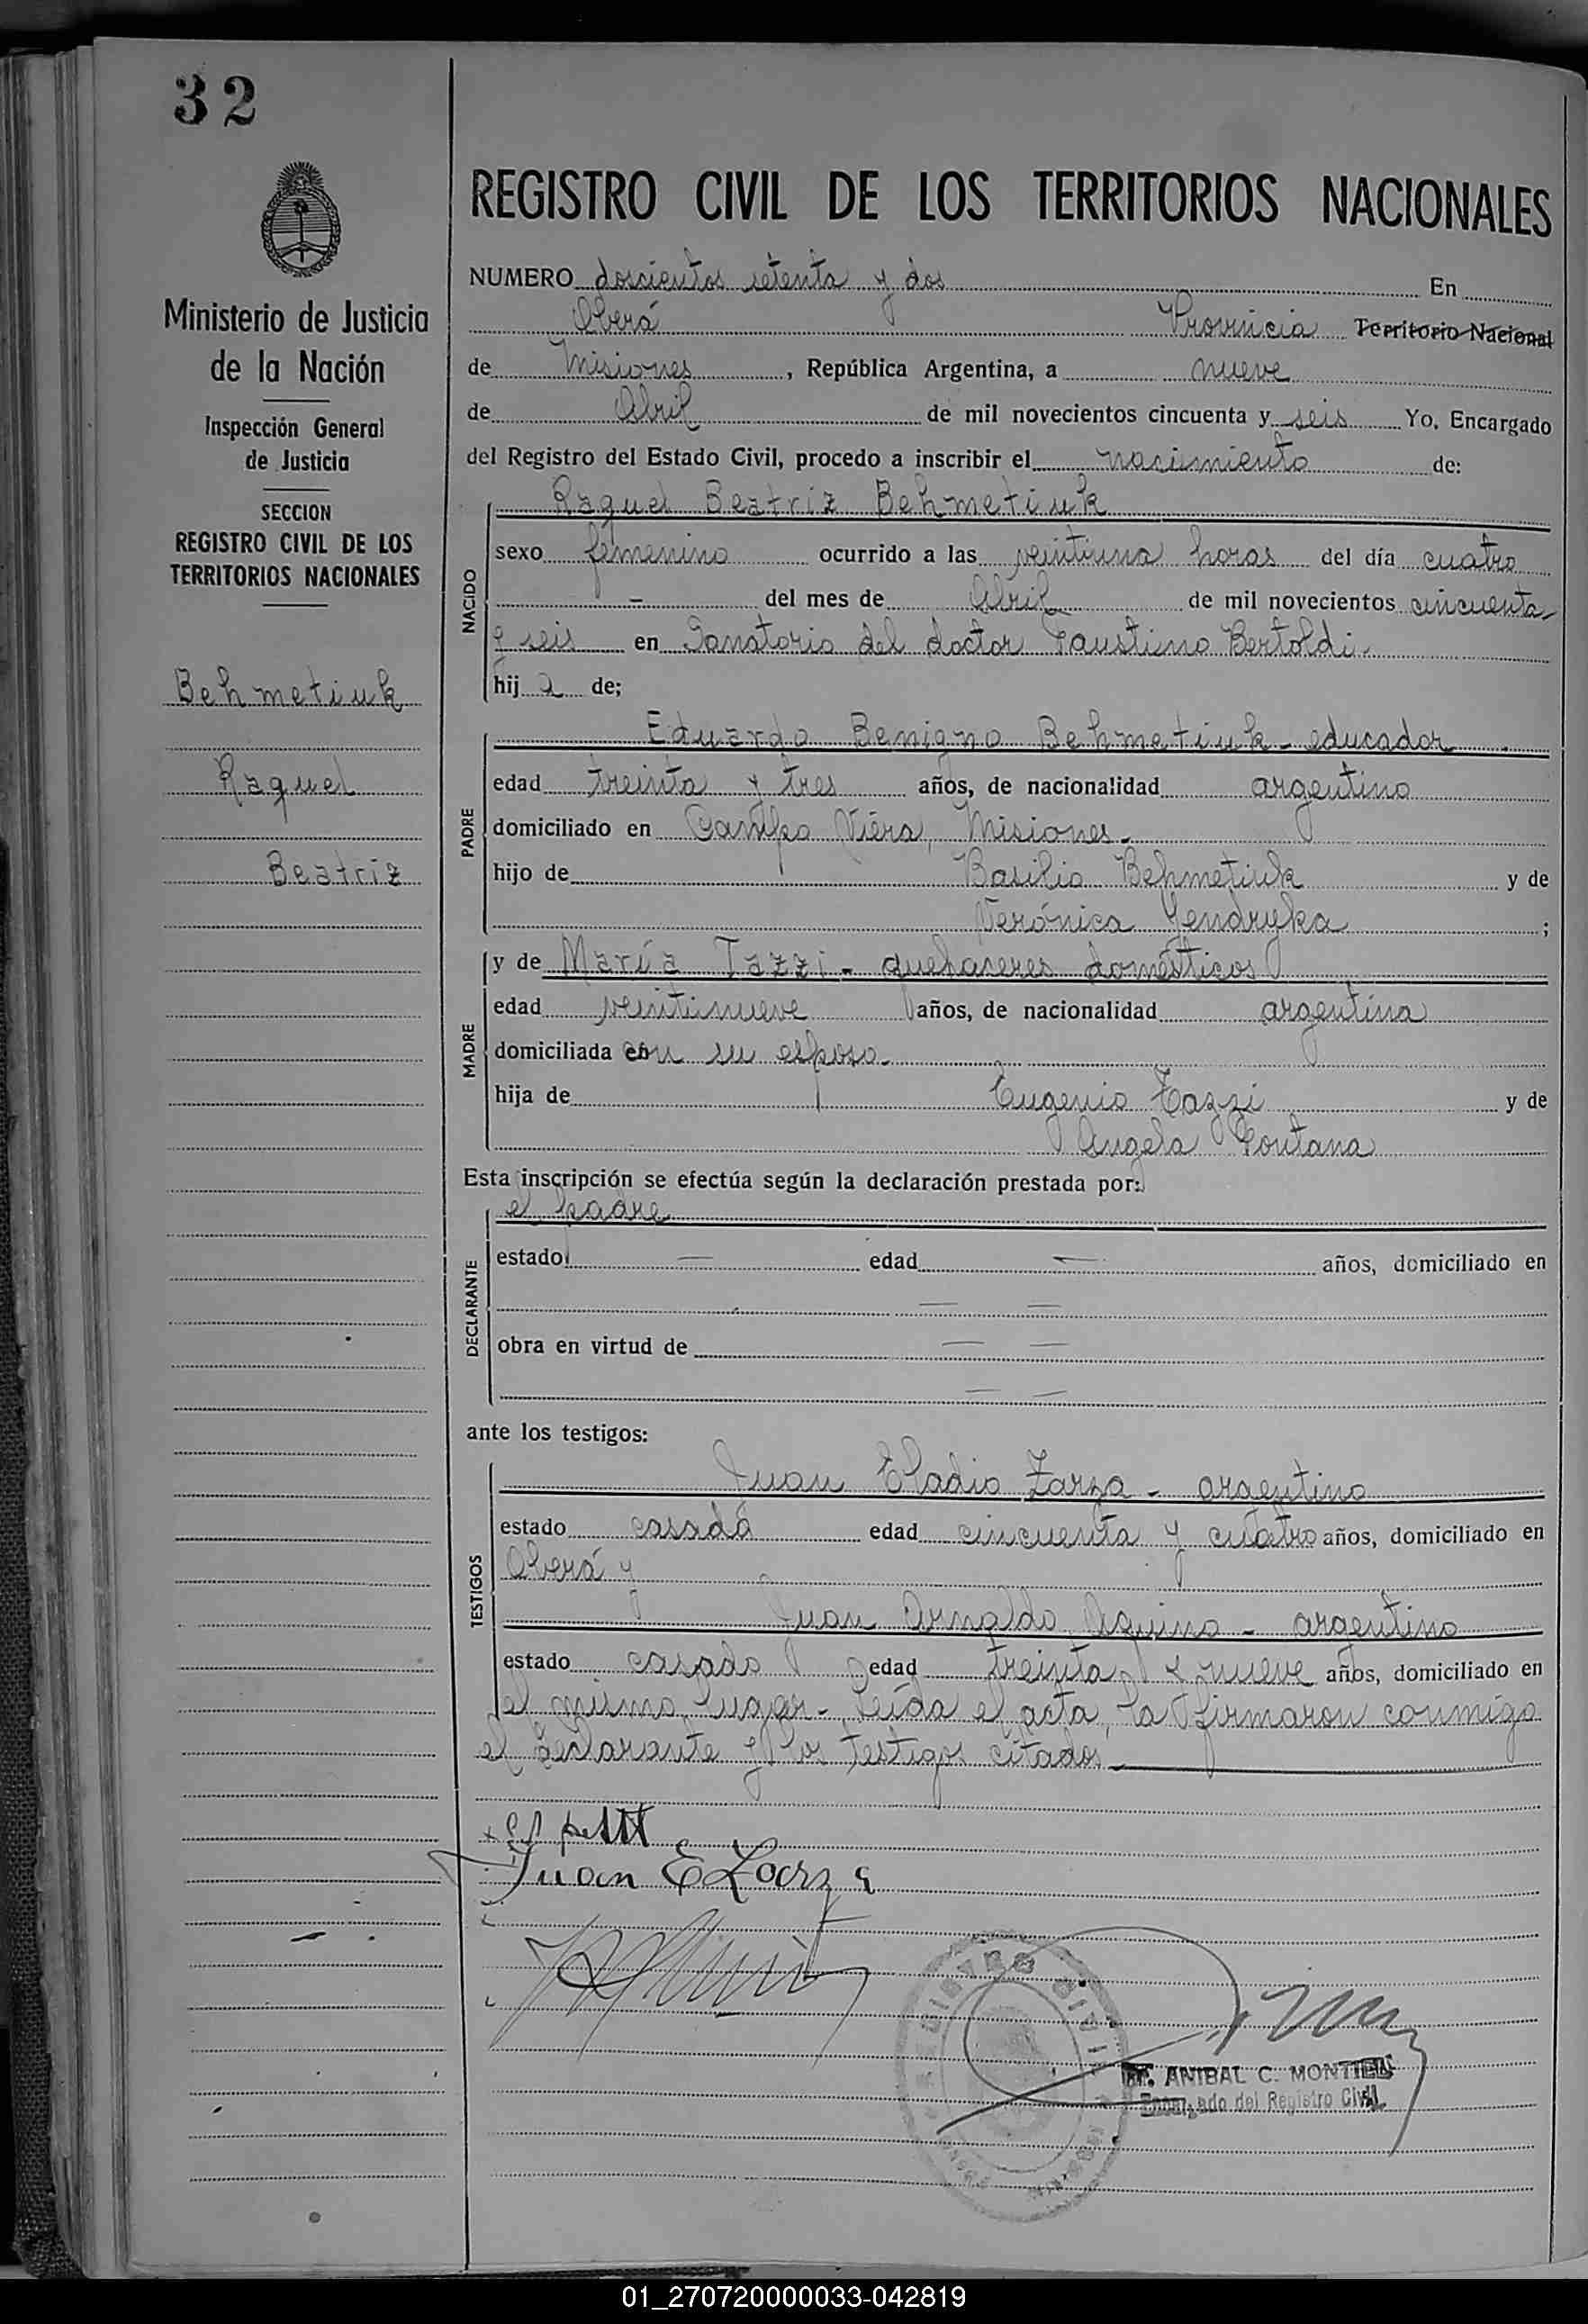 32
REGISTRO CIVIL DE LOS TERRITORIOS NACIONALES
Ministerio de Justicia
de la Nación
Inspección General
de Justicia
SECCION
REGISTRO CIVIL DE LOS
TERRITORIOS NACIONALES
Behmetiuk
Raquel
Beatriz
NUMERO doscientos setenta y dos En
Oberá Provincia Territorio Nacional
de Misiones, República Argentina, a nueve
de Abril de mil novecientos cincuenta y seis Yo, Encargado
del Registro del Estado Civil, procedo a inscribir el nacimiento de:
NACIDO
Raquel Beatriz Behmetiuk
sexo femenino ocurrido a las veintiuna horas del día cuatro
- del mes de Abril de mil novecientos cincuenta
y seis en Sanatorio del doctor Faustino Bertoldi.
hij a de;
PADRE
Eduardo Benigno Behmetiuk - educador
edad treinta y tres años, de nacionalidad argentino
domiciliado en Campo Viera, Misiones.
hijo de Basilio Behmetiuk y de
Verónica Yendryka ;
y de María Tazzi - quehaceres domésticos
MADRE
edad veintinueve años, de nacionalidad argentina
domiciliada con su esposo.
hija de Eugenio Tazzi y de
Angela Fontana
Esta inscripción se efectúa según la declaración prestada por:
DECLARANTE
el padre
estado — edad — años, domiciliado en
— —
obra en virtud de — —
— —
ante los testigos:
TESTIGOS
Juan Eladio Zarza - argentino
estado casado edad cincuenta y cuatro años, domiciliado en
Oberá y
Juan Arnaldo Aquino - argentino
estado casado edad treinta y nueve años, domiciliado en
el mismo lugar - Leída el acta, la firmaron conmigo
el declarante y los testigos citados.
Juan E Zarza
REGISTRO CIVIL
ANIBAL C. MONTIEL
Encargado del Registro Civil
01_270720000033-042819